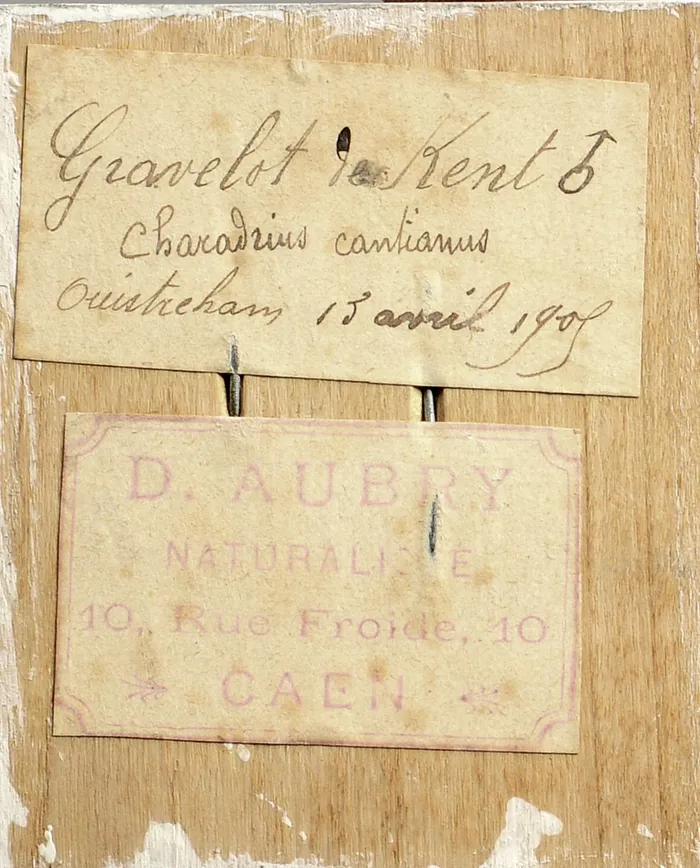 Gravelot de Kent ♂
Charadrius cantianus
Ouistreham 13 avril 1905
D. AUBRY
NATURALISTE
10, Rue Froide, 10
CAEN